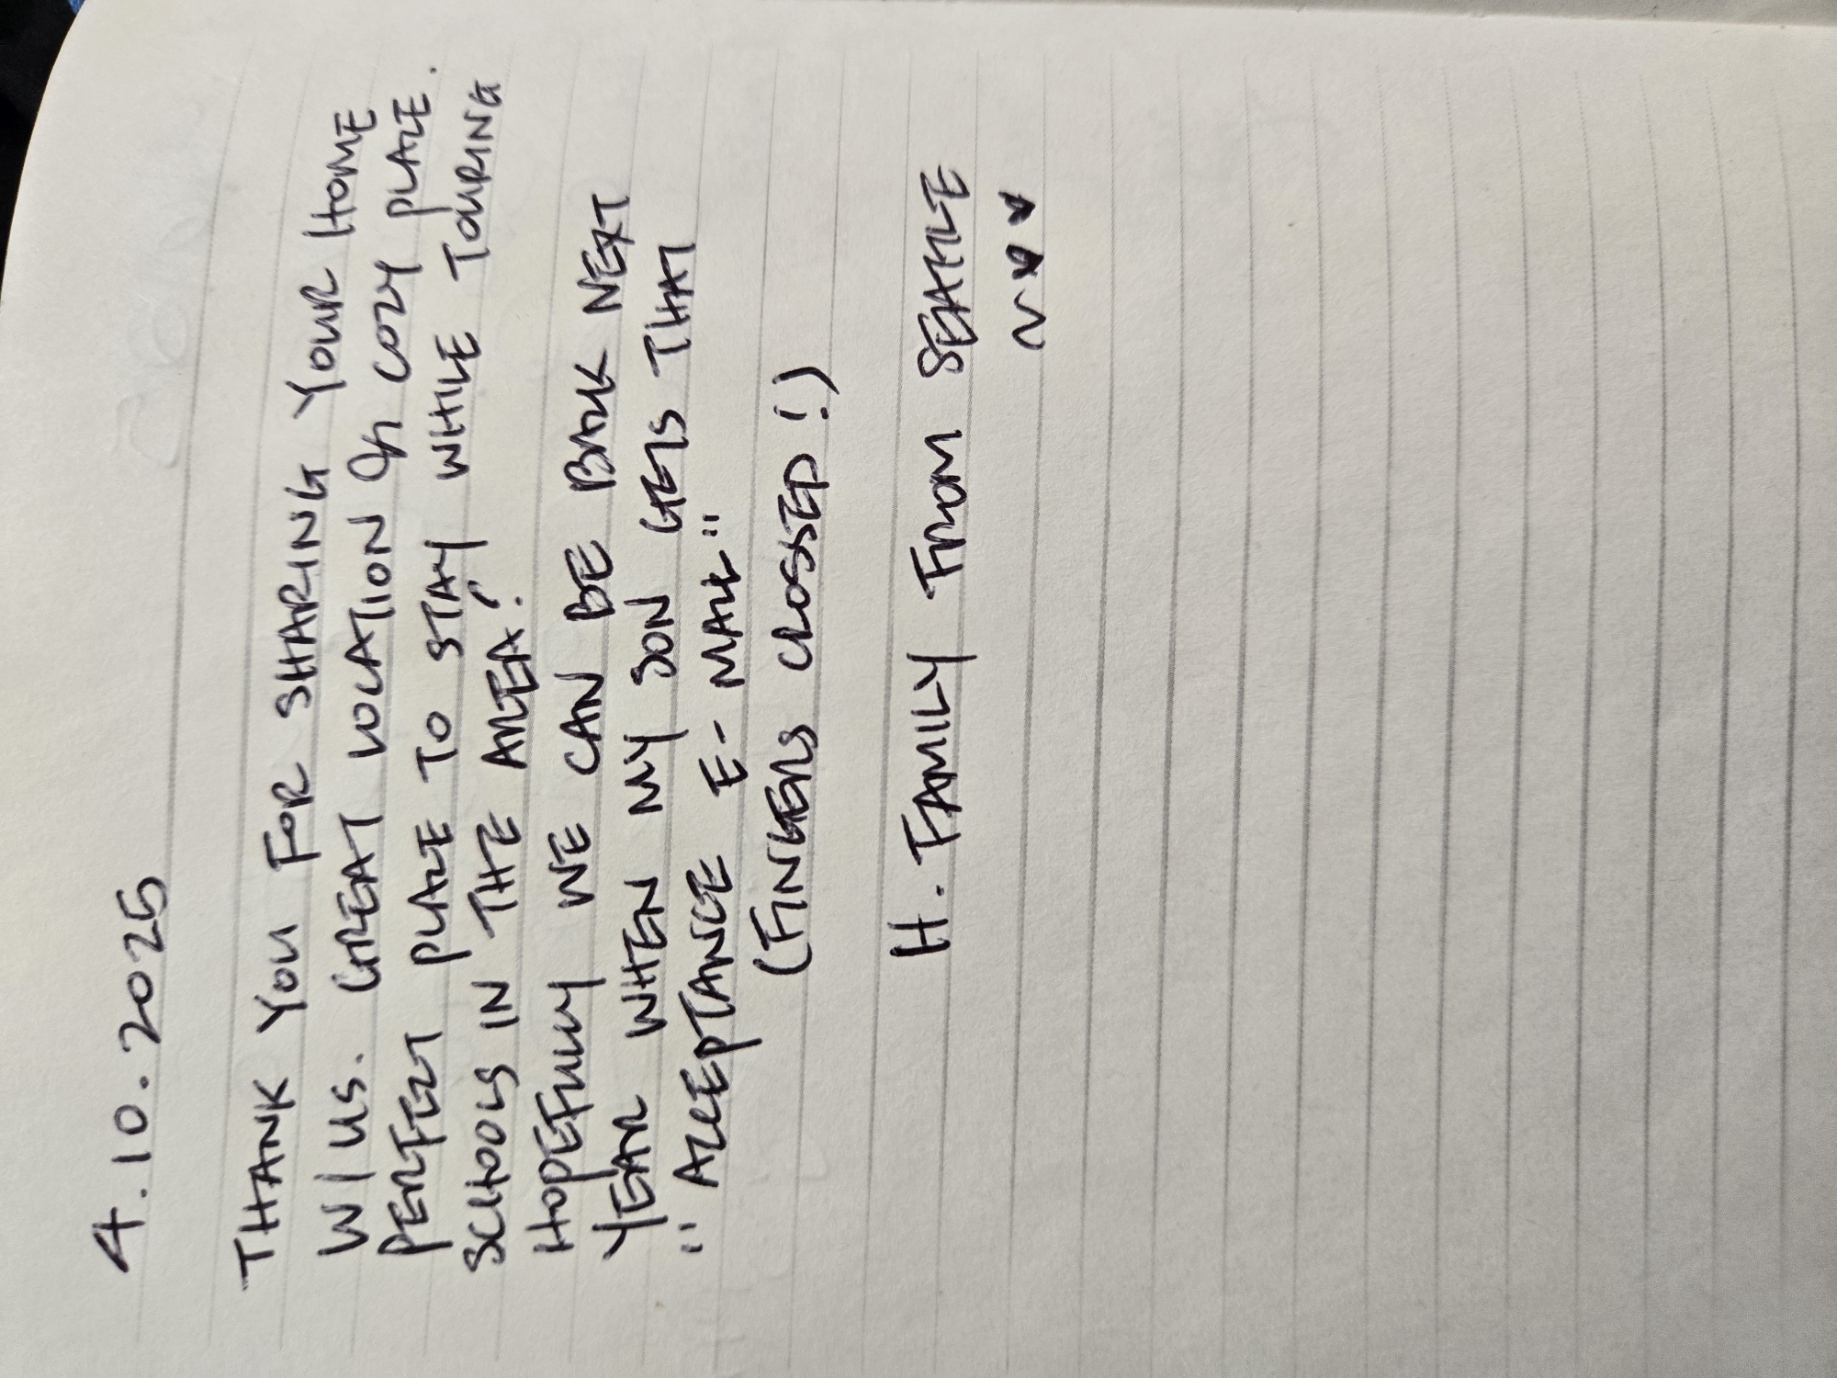 4.10.2025
THANK YOU FOR SHARING YOUR HOME
W/US. GREAT LOCATION & COZY PLACE.
PERFECT PLACE TO STAY WHILE TOURING
SCHOOLS IN THE AREA!
HOPEFULLY WE CAN BE BACK NEXT
YEAR WHEN MY SON GETS THAT
"ACCEPTANCE E-MAIL"
(FINGERS CROSSED!)
H. FAMILY FROM SEATTLE
♥♥♥